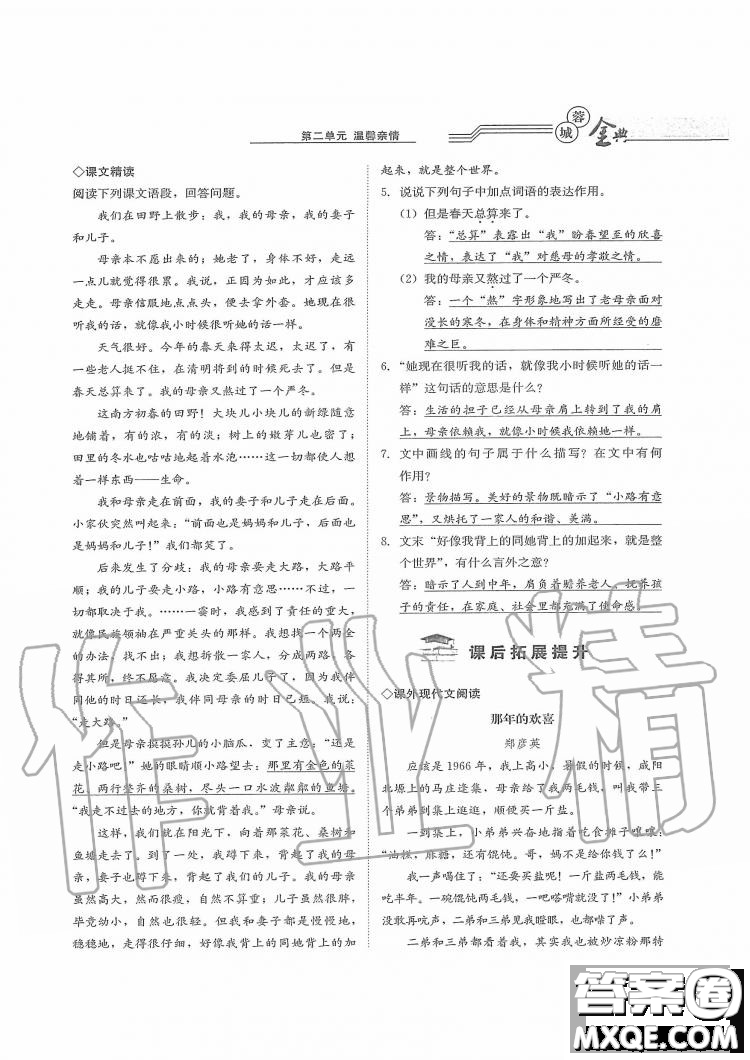 第二单元 温馨亲情
蓉城金典
◇课文精读
阅读下列课文语段，回答问题。
我们在田野上散步：我，我的母亲，我的妻子
和儿子。
母亲本不愿出来的；她老了，身体不好，走远
一点儿就觉得很累。我说，正因为如此，才应该多
走走。母亲信服地点点头，便去拿外套。她现在很
听我的话，就像我小时候很听她的话一样。
天气很好。今年的春天来得太迟，太迟了，有
一些老人挺不住，在清明将到的时候死去了。但
是春天总算来了。我的母亲又熬过了一个严冬。
这南方初春的田野！大块儿小块儿的新绿随意
地铺着，有的浓，有的淡；树上的嫩芽儿也密了；
田里的冬水也咕咕地起着水泡……这一切都使人想
着一样东西——生命。
我和母亲走在前面，我的妻子和儿子走在后面。
小家伙突然叫起来：“前面也是妈妈和儿子，后面也
是妈妈和儿子！”我们都笑了。
后来发生了分歧：我的母亲要走大路，大路平
顺；我的儿子要走小路，小路有意思……不过，一
切都取决于我。……一霎时，我感到了责任的重大，
就像民族领袖在严重关头的那样。我想找一个两全
的办法，找不出；我想拆散一家人，分成两路，各
得其所，终不愿意。我决定委屈儿子了，因为我伴
同他的时日还长，我伴同母亲的时日已短。我说：
“走大路。”
但是母亲摸摸孙儿的小脑瓜，变了主意：“还是
走小路吧！”她的眼睛顺小路望去：那里有金色的菜
花、两行整齐的桑树，尽头一口水波粼粼的鱼塘。
“我走不过去的地方，你就背着我。”母亲说。
这样，我们就在阳光下，向着那菜花、桑树和
鱼塘走去了。到了一处，我蹲下来，背起了我的母
亲，我的妻子也蹲下来，背起了我们的儿子。我的母亲
虽然高大，然而很瘦，自然不算重；儿子虽然很胖，
毕竟幼小，自然也很轻。但我和妻子都是慢慢地，
稳稳地，走得很仔细，好像我背上的同她背上的加
起来，就是整个世界。
5. 说说下列句子中加点词语的表达作用。
（1）但是春天总算来了。
答：“总算”表露出“我”盼春望至的欣喜
之情，表达了“我”对慈母的孝敬之情。
（2）我的母亲又熬过了一个严冬。
答：一个“熬”字形象地写出了老母亲面对
漫长的寒冬，在身体和精神方面所经受的磨
难之巨。
6. “她现在很听我的话，就像我小时候听她的话一
样”这句话的意思是什么？
答：生活的担子已经从母亲肩上转到了我的肩
上，母亲依赖我，就像小时候我依赖她一样。
7. 文中画线的句子属于什么描写？在文中有何
作用？
答：景物描写。美好的景物既暗示了“小路有意
思”，又烘托了一家人的和谐、美满。
8. 文末“好像我背上的同她背上的加起来，就是整
个世界”，有什么言外之意？
答：暗示了人到中年，肩负着赡养老人、抚养孩
子的责任，在家庭、社会里都充满了使命感。
课后拓展提升
◇课外现代文阅读
那年的欢喜
郑彦英
应该是1966年，我上高小，暑假的时候，咸阳
北塬上的马庄逢集，母亲给了我两毛钱，叫我带三
个弟弟到集上逛逛，顺便买一斤盐。
一到集上，小弟弟兴奋地指着吃食摊子嚷嚷：
“油糕，麻糖，还有馄饨。哥，妈不是给你钱了么！”
我一声喝住了：“还要买盐呢！一斤盐两毛钱，能
吃半年。一碗馄饨两毛钱，一吧嗒嘴就没了！”小弟弟
没敢再吭声，二弟和三弟见我瞪眼，也都噤了声。
二弟和三弟都看着我，其实我也被炒凉粉那特
作业精
答案圈
MXQE.COM